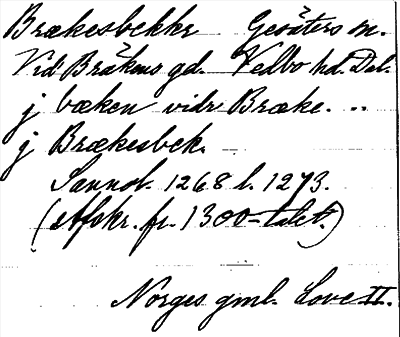 Brækesbekkr Gesäters sn.
Vid Bräkene gd. Vedbo hd. Dal.
j bæken vidr Bræke. ..
j Brækesbek.
Sannol. 1268 l. 1273.
(Afskr. fr. 1300-talet.)
Norges gml. Love II.